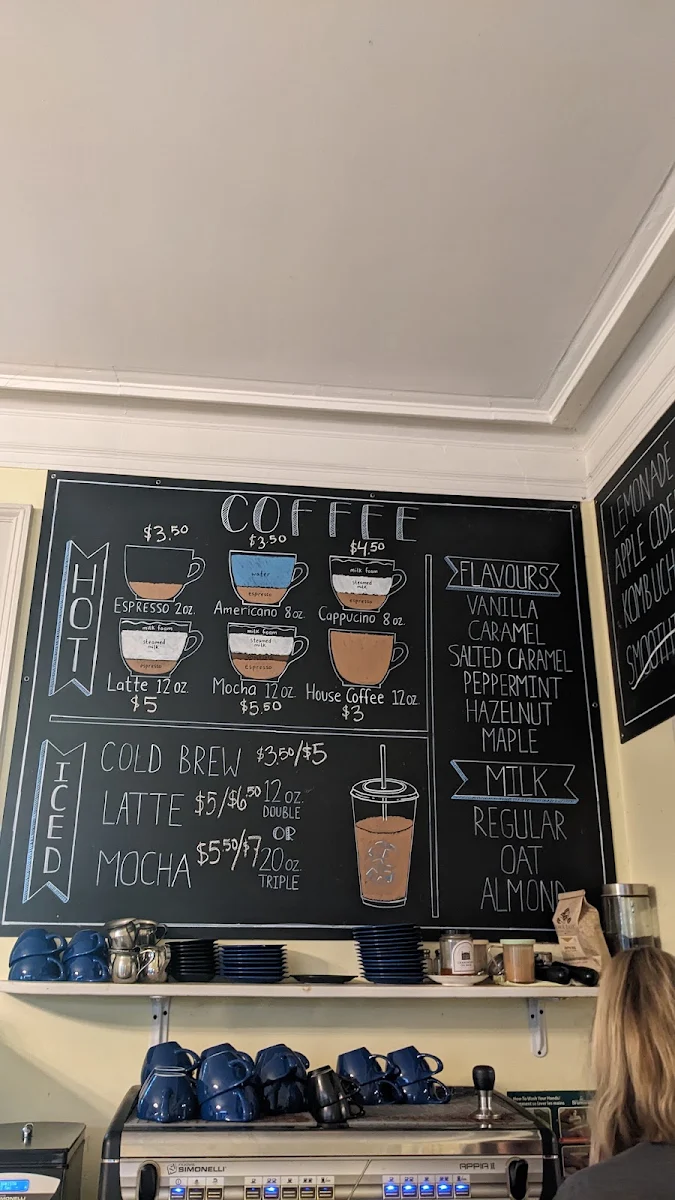 COFFEE
HOT
$3.50
$3.50
$4.50
water
espresso
milk foam
steamed milk
espresso
ESPRESSO 2oz.
Americano 8oz.
Cappucino 8oz.
milk foam
steamed milk
espresso
milk foam
steamed milk
espresso
Latte 12oz
Mocha 12oz.
House Coffee 12oz.
$5
$5.50
$3
ICED
COLD BREW $3.50/$5
LATTE $5/$6.50 12oz.
DOUBLE
OR
MOCHA $5.50/$7 20oz.
TRIPLE
FLAVOURS
VANILLA
CARAMEL
SALTED CARAMEL
PEPPERMINT
HAZELNUT
MAPLE
MILK
REGULAR
OAT
ALMOND
LEMONADE
APPLE CIDE
KOMBUCH
SMOOTH
SIMONELLI
APPIA II
How To Wash Your Hands!